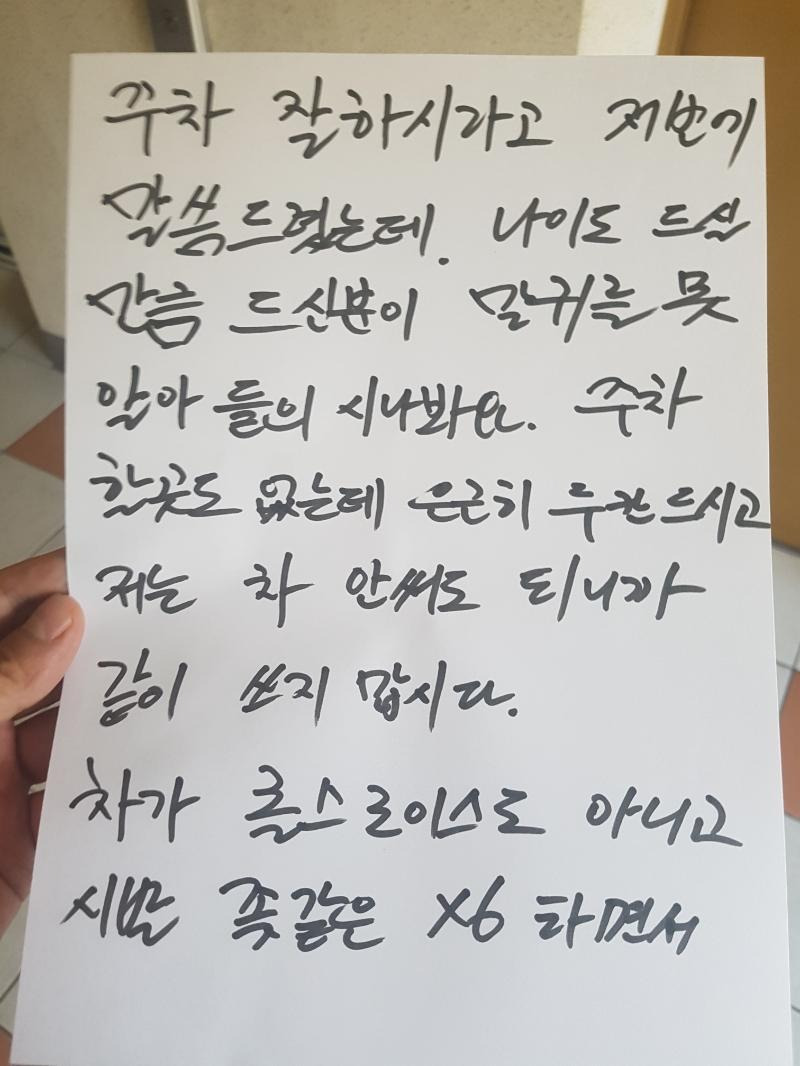 주차 잘하시라고 저번에
말씀드렸는데. 나이도 드실
만큼 드신분이 말귀를 못
알아 들의 시나봐요. 주차
할곳도 없는데 은근히 두칸드시고
저는 차 안써도 되니까
같이 쓰지 맙시다.
차가 롤스로이스도 아니고
시발 좆같은 X6 타면서